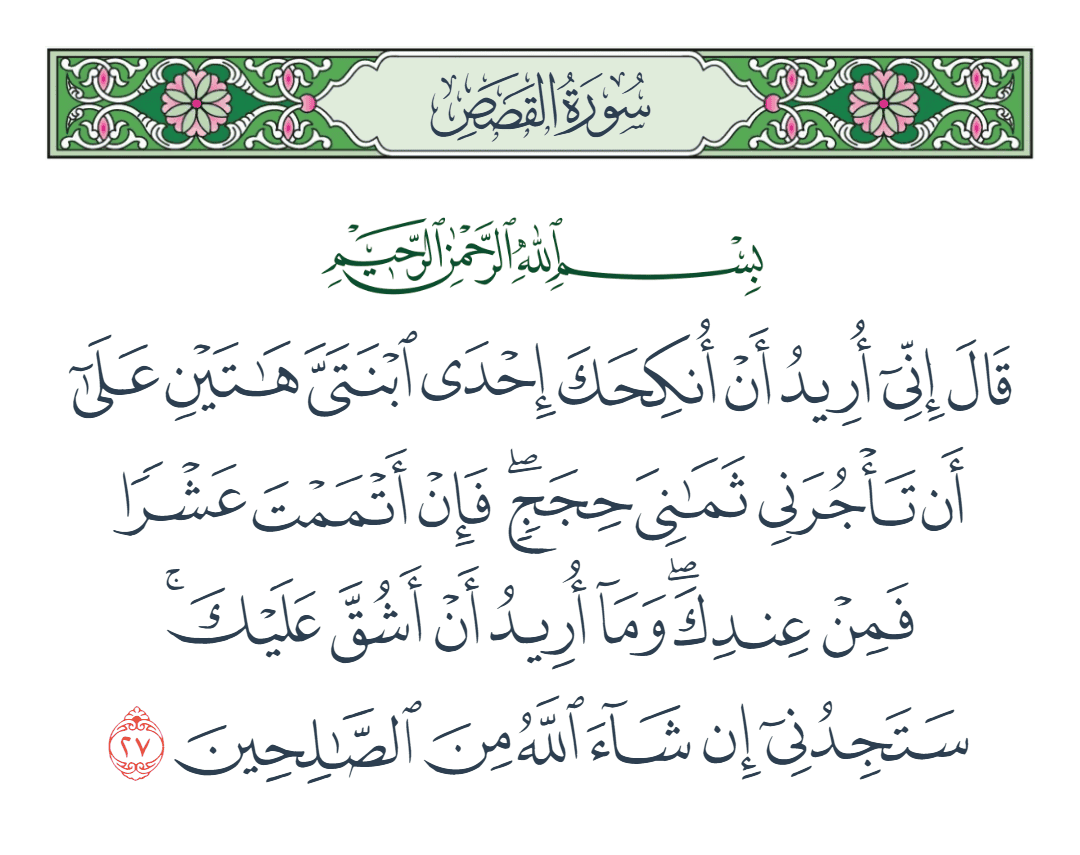 سُورَةُ القَصَصِ
بِسْمِ ٱللَّهِ ٱلرَّحْمَٰنِ ٱلرَّحِيمِ
قَالَ إِنِّيٓ أُرِيدُ أَنْ أُنكِحَكَ إِحْدَى ٱبْنَتَيَّ هَٰتَيْنِ عَلَىٰٓ
أَن تَأْجُرَنِي ثَمَٰنِيَ حِجَجٖۖ فَإِنْ أَتْمَمْتَ عَشْرٗا
فَمِنْ عِندِكَۖ وَمَآ أُرِيدُ أَنْ أَشُقَّ عَلَيْكَۚ
سَتَجِدُنِيٓ إِن شَآءَ ٱللَّهُ مِنَ ٱلصَّٰلِحِينَ ٢٧